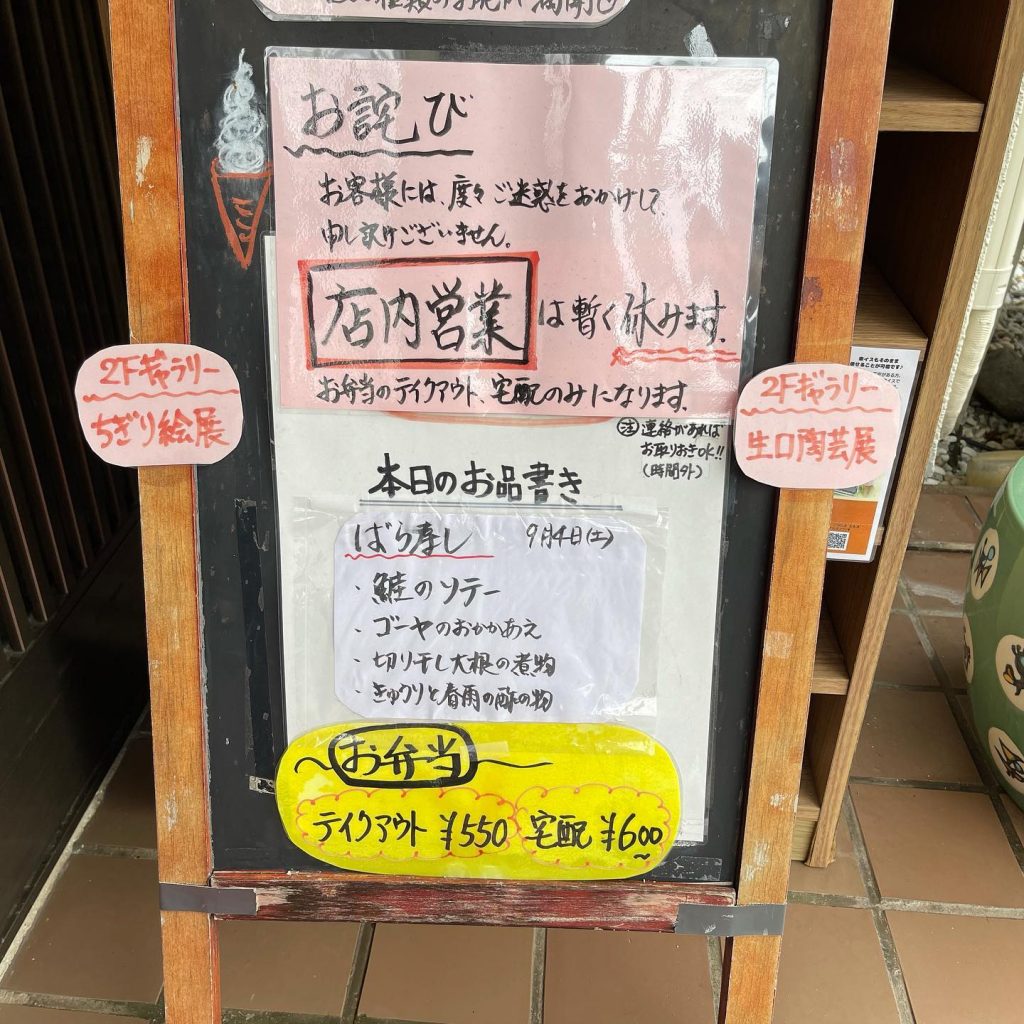 お詫び
お客様には、度々ご迷惑をおかけして、
申し訳ございません。
店内営業は暫く休みます。
お弁当のテイクアウト、宅配のみになります。
注 連絡があれば
お取りおきOK!!
(時間外)
2Fギャラリー
ちぎり絵展
2Fギャラリー
生口陶芸展
本日のお品書き
ばら寿し 9月4日(土)
・鮭のソテー
・ゴーヤのおかかあえ
・切り干し大根の煮物
・きゅうりと春雨の酢の物
お弁当
テイクアウト ¥550 宅配 ¥600~